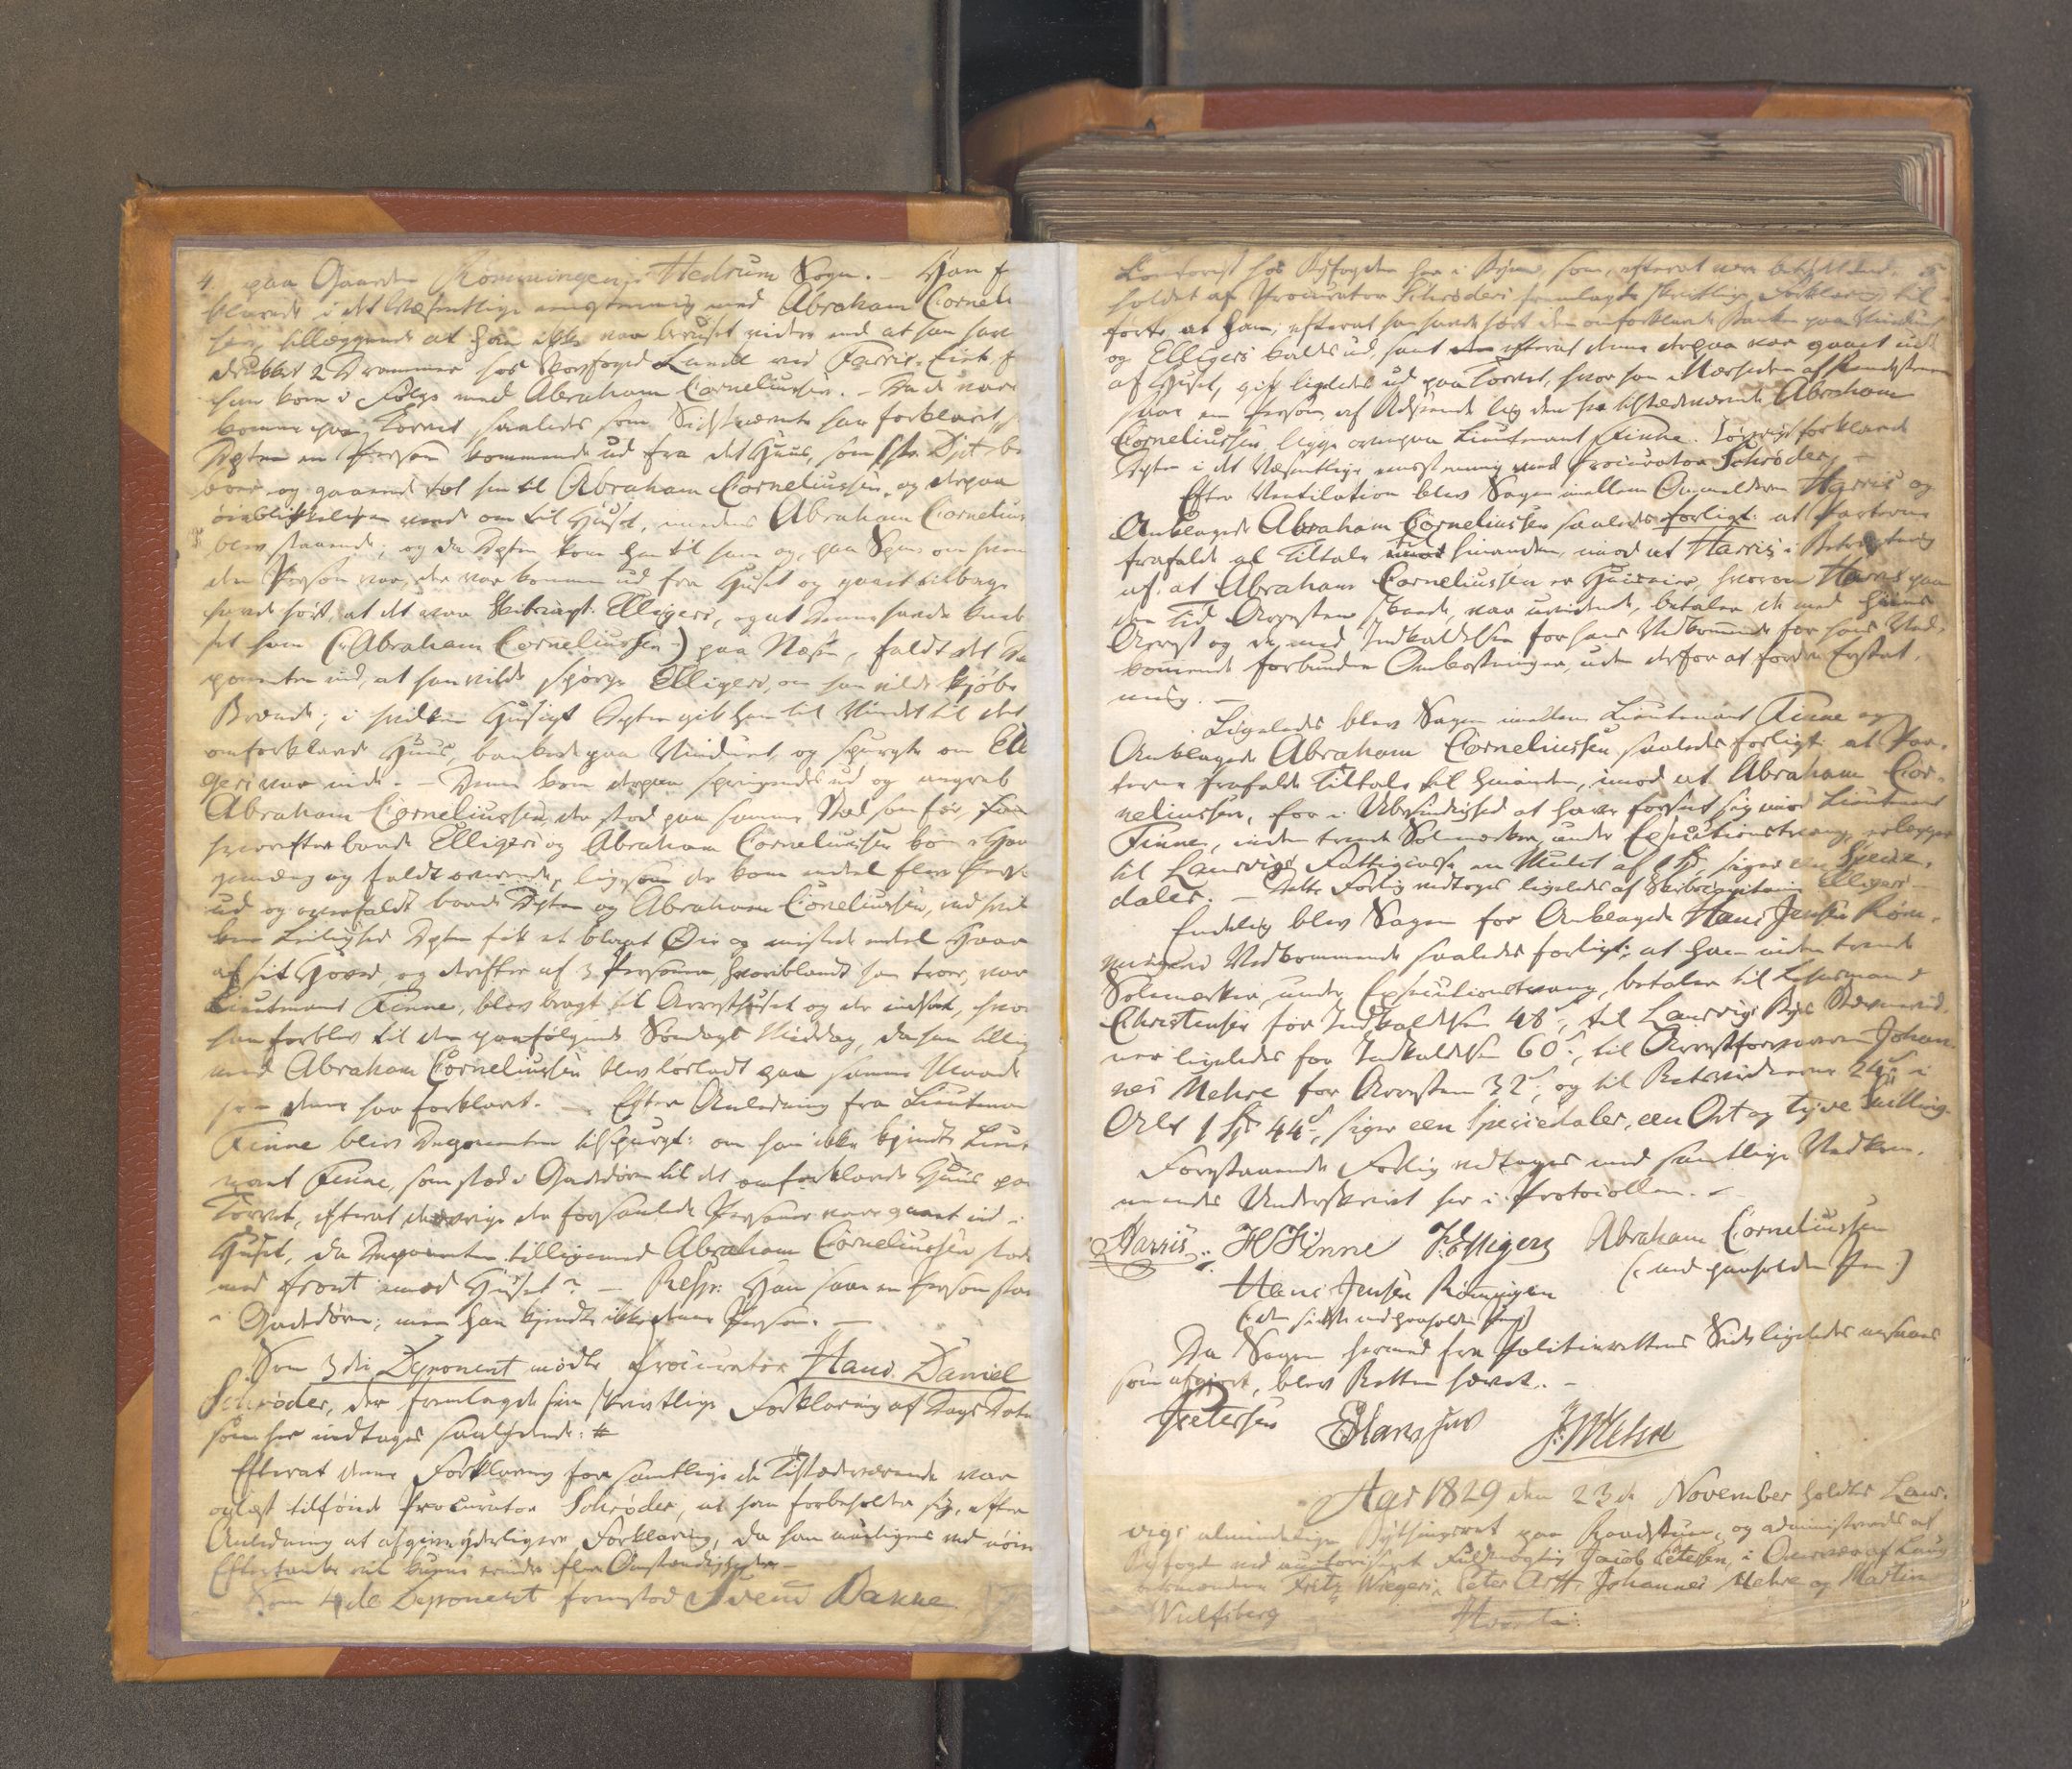 4. paa Gaarden Rømmingen i Hedrum Sogn. – Han f
klarede i det Væsentlige eenstemmig med Abraham Corneli
sen, tillæggende at han ikke var beruset videre end at han havde
drukket 2 Drammer hos Skovfoged Lund ved Farris-Eiet, f
han kom i Følge med Abraham Corneliussen. – Da de vare
komne paa Torvet saaledes som Sidstnævnte har forklaret,
Dpten en Person kommende ud fra det Huus, som
boer og gaaende hen til Abraham Corneliussen, og derpaa
øieblikkeligen vende om til Huset, medens Abraham Cornelius
blev staaende; og da Dpten kom hen til ham og, paa Spm om hvem
den Person var, der var kommen ud fra Huset og gaaet tilbage
havde hørt, at det var Skibscapt. Elligers, og at denne havde kneb
set ham (:Abraham Corneliussen:) paa Næsen, faldt det De
ponenten ind, at han vilde spørge Elligers, om han vilde kjøbe
Brænde; i hvilken Hensigt Dpten gik hen til Vinduet til det
omforklarede Huus, bankede paa Vinduet, og spurgte om Elli
gers var inde. – Denne kom derpaa springende ud og angreb
Abraham Corneliussen, der stod paa samme Sted som før,
hvorefter baade Elligers og Abraham Corneliussen kom i Haand
gemæng og faldt overende, ligesom der kom endeel flere Perso
ud og overfaldt baade Dpten og Abraham Corneliussen, ved hvil
ken Leilighed Dpten fik et blaat Øie og mistede endeel Haar
af sit Hoved, og derefter af 3 Personer, hvoriblandt han troer, var
Lieutenant Finne, blev bragt til Arresthuset og der indsat, hvor
han forblev til den paafølgende Søndags Middag, da han tillige
med Abraham Corneliussen blev løsladt paa samme Maade
som denne har forklaret. – Efter Anledning fra Lieutenant
Finne blev Deponenten tilspurgt: om han ikke kjendte Lieut
nant Finne, som stod i Gadedøren til det omforklarede Huus paa
Torvet, efterat de øvrige der forsamlede Personer vare gaaet ind i
Huset, da Deponenten tilligemed Abraham Corneliussen stod
med Front imod Huset? – Resp: Han saae en Person staae
i Gadedøren; men han kjendte ikke denne Person. –
Som 3die Deponent mødte Procurator Hans Daniel
Schrøder, der fremlagde sin skriftlige Forklaring af Dags Dato
som her indtages saalydende: #
Efterat denne Forklaring for samtlige de Tilstedeværende var
oplæst tilføiede Procurator Schrøder, at han forbeholder sig, efter
Anledning at afgive yderligere Forklaring, da han muligens ved nøiere
Eftertanke vil kunne erindre flere Omstændigheder –
Som 4de Deponent fremstod Svend Bakke
Contorist hos Byfogden her i Byen, som, efterat være bekjendt Ind- 5
holdet af Procurator Schrøders fremlagte skriftlige Forklaring, til-
førte, at han, efterat han havde hørt den omforklarede Banken paa Vinduet
og Elligers kaldes ud, samt efterat denne derpaa var gaaet ud
af Huset, gik ligeledes ud paa Torvet, hvor han i Nærheden af Rendestenen
saae en Person, af Udseende lig den her tilstedeværende Abraham
Corneliussen, ligge ovenpaa Lieutenant Finne. Iøvrigt forklarede
Dpten i det Væsentlige eenstemmig med Procurator Schrøder. –
Efter Ventilation blev Sagen imellem Anmelderen Harris og
Anklagede Abraham Corneliussen saaledes forligt: at Parterne
frafaldt al Tiltale til hinanden, imod at Harris i Betragtning
af, at Abraham Corneliussen er Huseier, hvorom Harris paa
den Tid Arresten skeede, var uvidende, betaler de med hans
Arrest og de med Indkaldelsen for hans Vedkommende for hans Ved-
kommende forbundne Omkostninger, uden derfor at fordre Erstat-
ning. –
Ligeledes blev Sagen imellem Lieutenant Finne og
Anklagede Abraham Corneliussen saaledes forligt: at Par-
terne frafaldt Tiltale til hinanden, imod at Abraham Cor-
neliussen, for i Ubesindighed at have forseet sig imod Lieutenant
Finne, inden trende Solemærker, under Executionstvang, erlægger
til Laurvigs Fattigcasse en Mulct af 1 Spd, siger een Specie-
daler. – Dette Forlig vedtoges ligeledes af Skibscapitain Elligers –
Endelig blev Sagen for Anklagede Hans Jensen Røm-
mingens Vedkommende saaledes forligt: at han inden trende
Solemærker, under Executionstvang, betaler til Lehnsmand
Christensen for Indkaldelsen 48 s, til Laurvigs Byes Stevnevid-
ner ligeledes for Indkaldelsen 60 s, til Arrestforvarer Johan-
nes Mehre for Arresten 32 s, og til Retsvidnerne 24 s, i
Alt 1 Spd 44 s, siger een Speciedaler, een Ort og tyve Skilling.
Forestaaende Forlig vedtoges med samtlige Vedkom-
mendes Underskrivt her i Protocollen. –
Harris. H Finne J. Elligers Abraham Corneliussen
(: med paaholden Pen :)
Hans Jensen Rømmingen
(: den sidste med paaholden Pen :)
Da Sagen hermed fra Politierettens Side ligeledes ansaaes
som afgjort, blev Retten hævet. –
J Petersen J. Mehre
Aar 1829 den 23de November holdtes Laur-
vigs almindelige Bythingsret paa Raadstuen, og administreredes af
Byfogd ved authoriseret Fuldmægtig Jacob Petersen, i Overvær af Laug
rettesmændene Fritz Wiegers, Peter Arff, Johannes Mehre og Martin
Wulfsberg Hvorda: